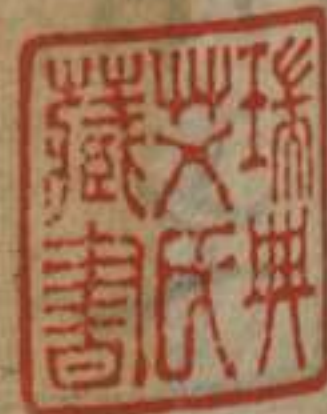 瑞典
艾氏
藏書